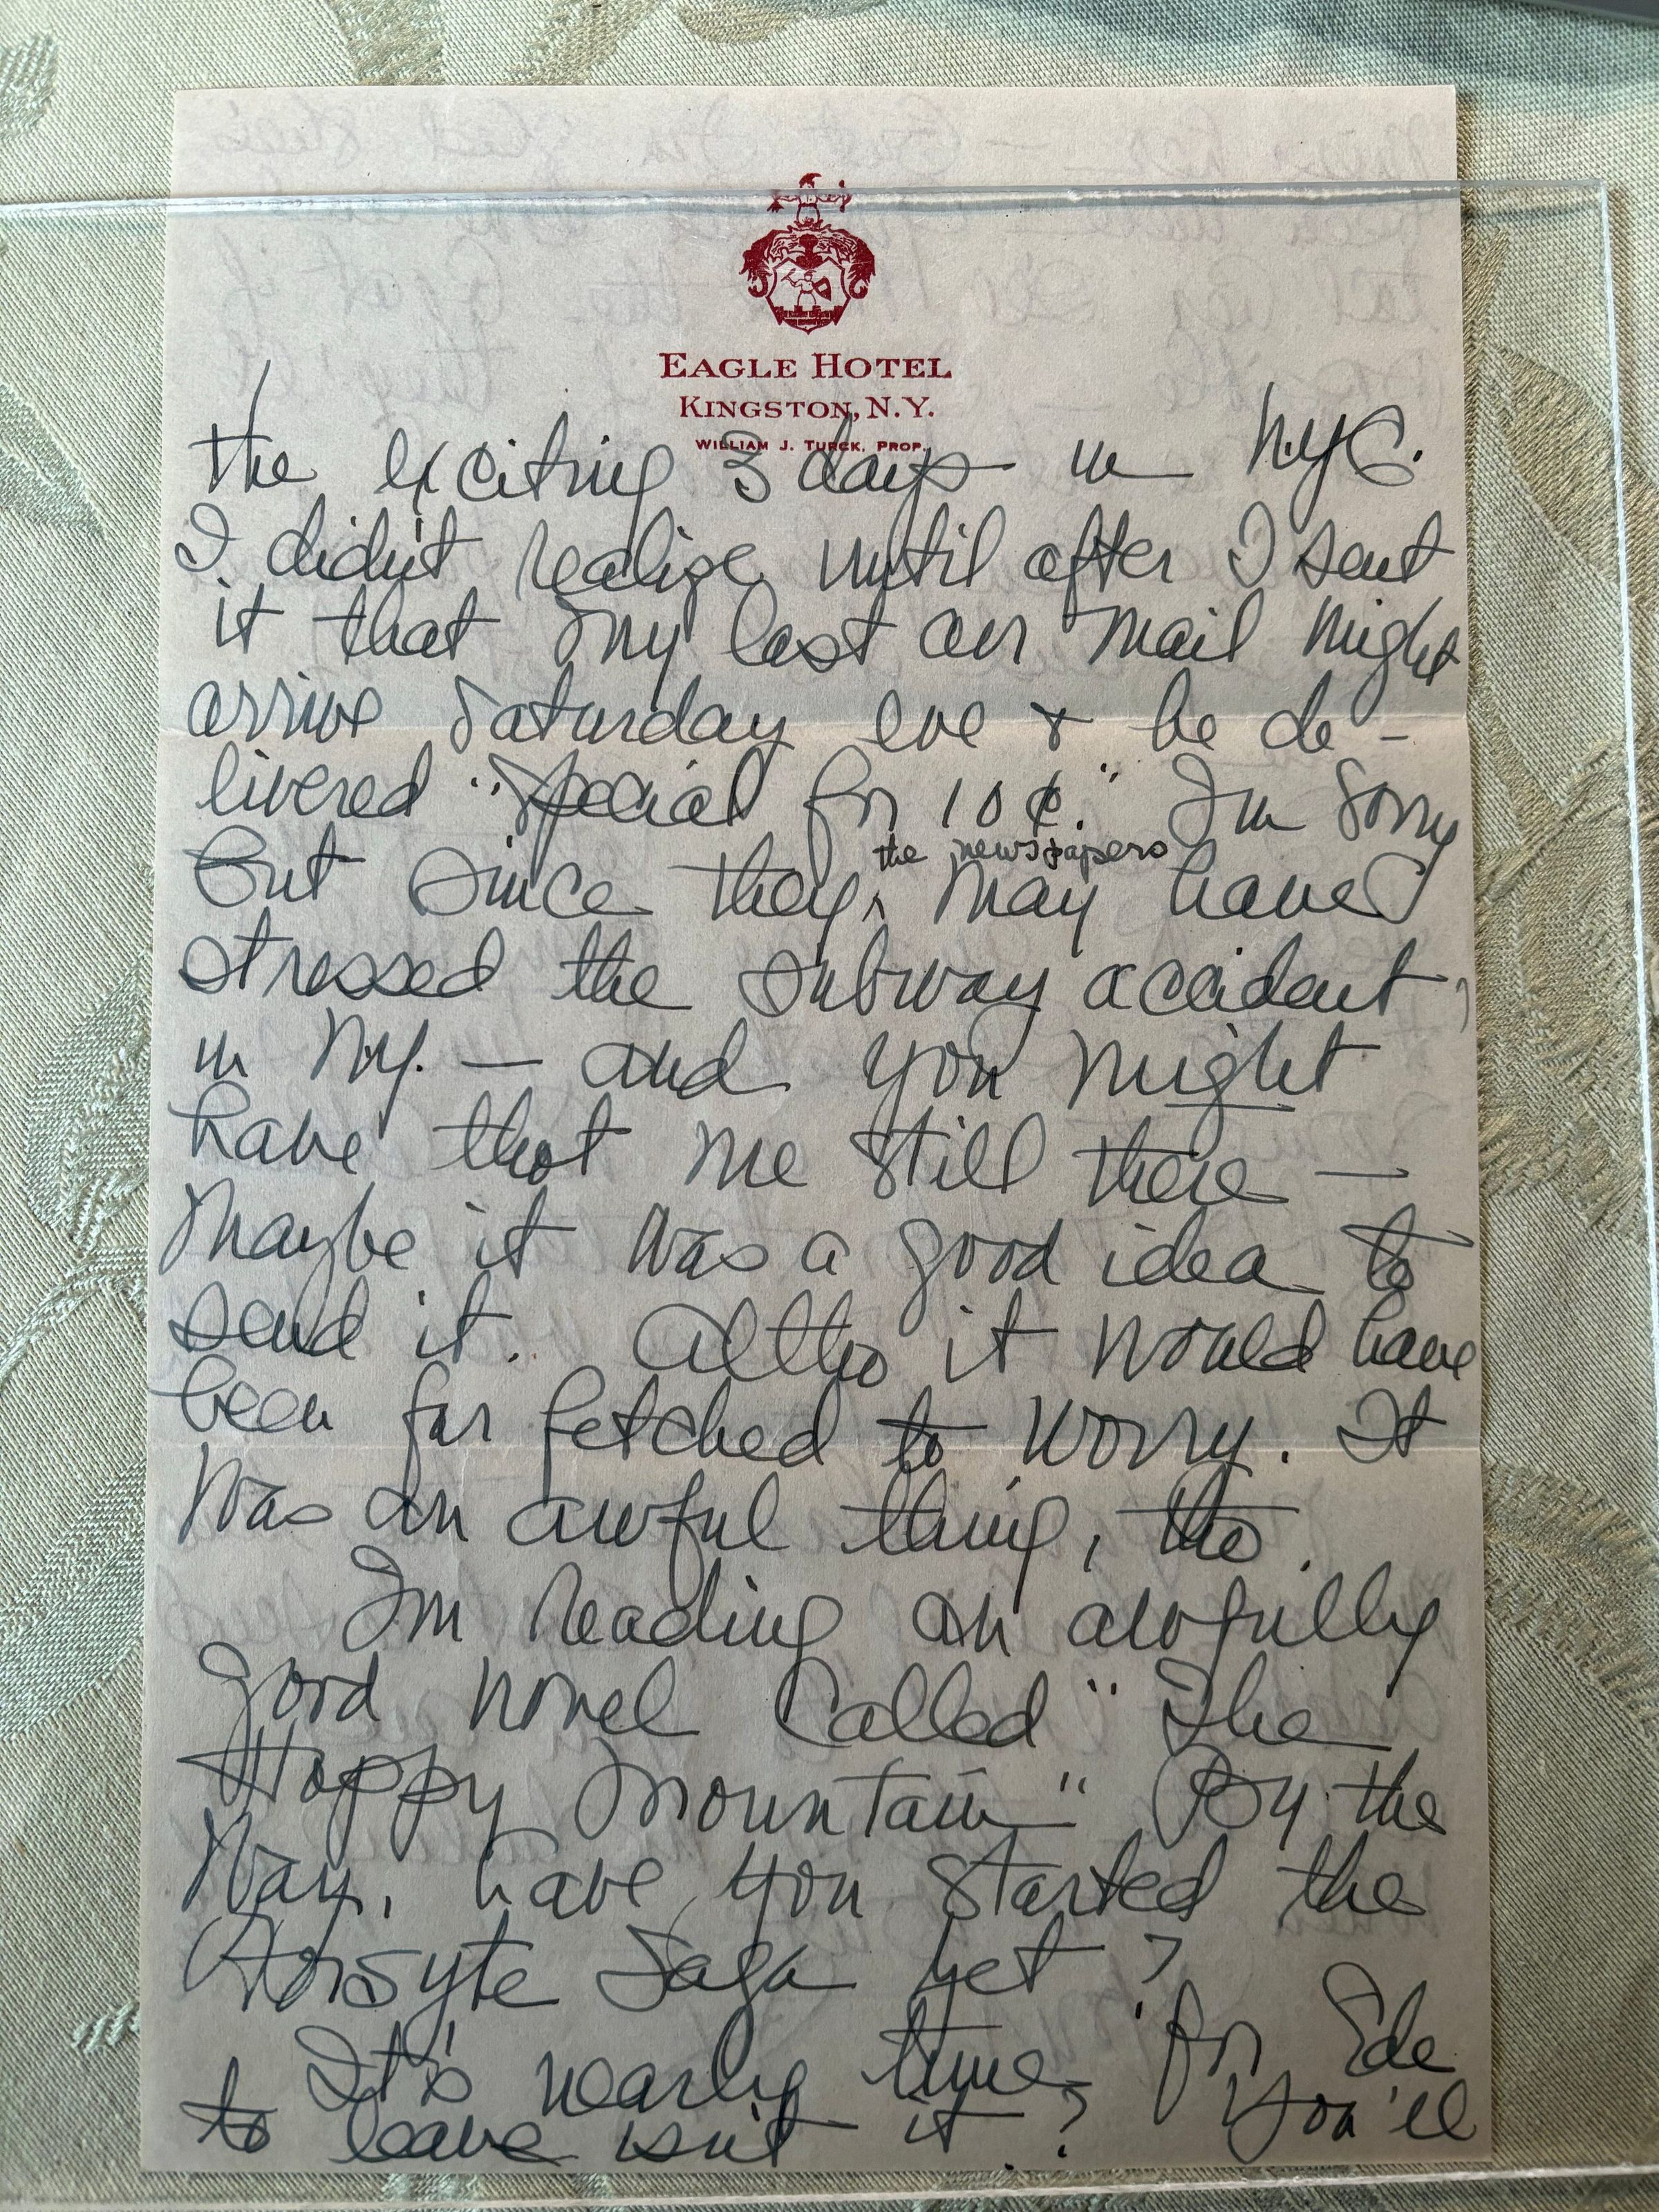 EAGLE HOTEL
KINGSTON, N.Y.
WILLIAM J. TURCK, PROP.
the exciting 3 days in N.Y.C.
I didn't realize until after I sent
it that my last air mail might
arrive Saturday eve & be de-
livered "Special for 10¢." I'm sorry
But since they, the newspapers may have
stressed the subway accident,
in N.Y. — and you might
have thot me still there —
Maybe it was a good idea to
send it. Altho it would have
been far fetched to worry. It
was an awful thing, tho.
I'm reading an awfully
good novel called "The
Happy Mountain" By the
Way, have you started the
Forsyte Saga yet?
It's nearly time for Ede
to leave isn't it? You'll